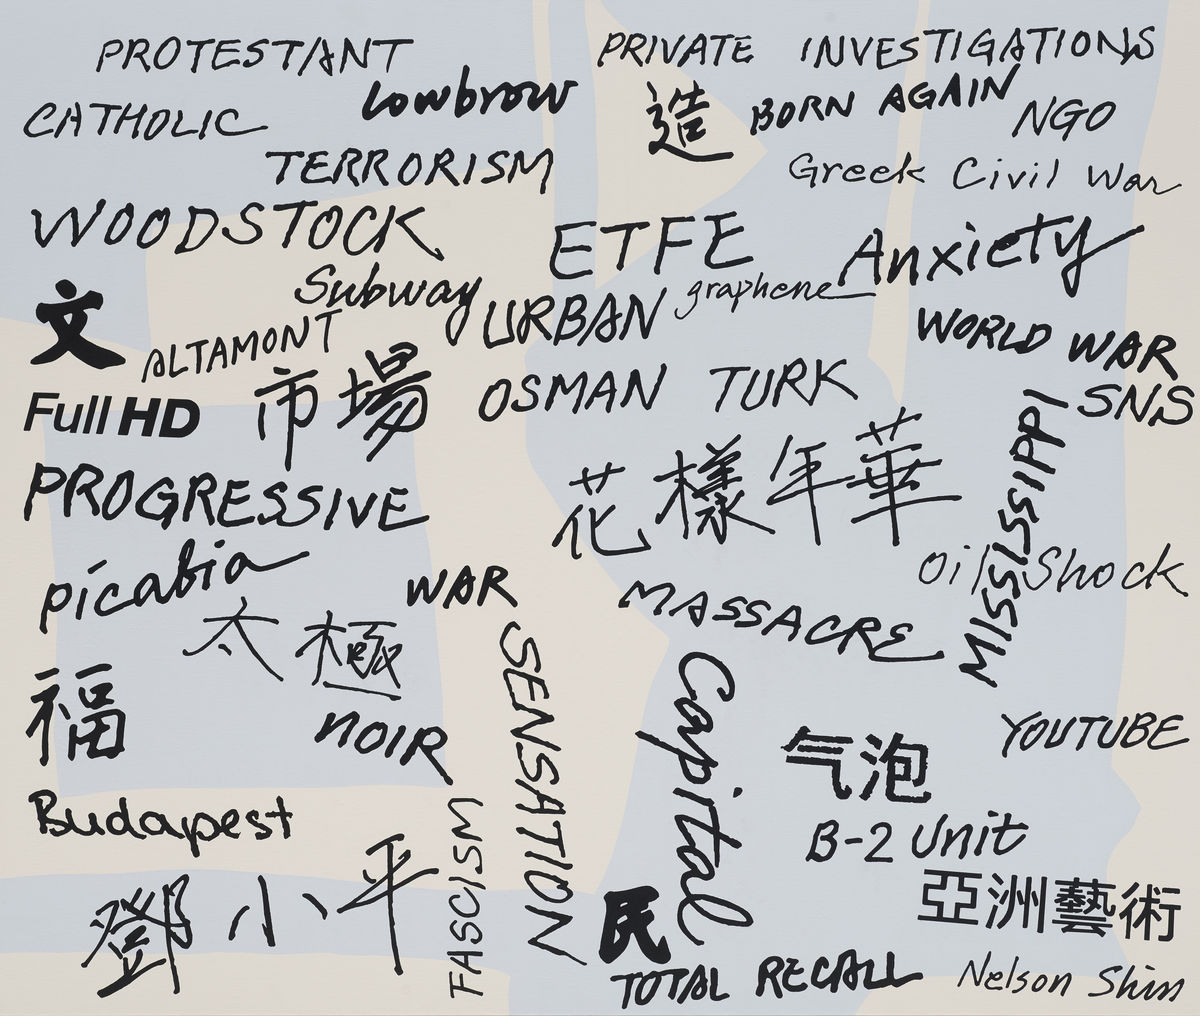 PROTESTANT
PRIVATE INVESTIGATIONS
lowbrow
CATHOLIC
造
BORN AGAIN
NGO
TERRORISM
Greek Civil War
WOODSTOCK
ETFE
Anxiety
Subway
URBAN
graphene
文
ALTAMONT
WORLD WAR
市場
OSMAN TURK
SNS
Full HD
MISSISSIPPI
花樣年華
PROGRESSIVE
picabia
WAR
Oil Shock
MASSACRE
太極
SENSATION
Capital
福
NOIR
YOUTUBE
气泡
Budapest
FASCISM
B-2 Unit
鄧小平
民
亞洲藝術
TOTAL RECALL
Nelson Shin